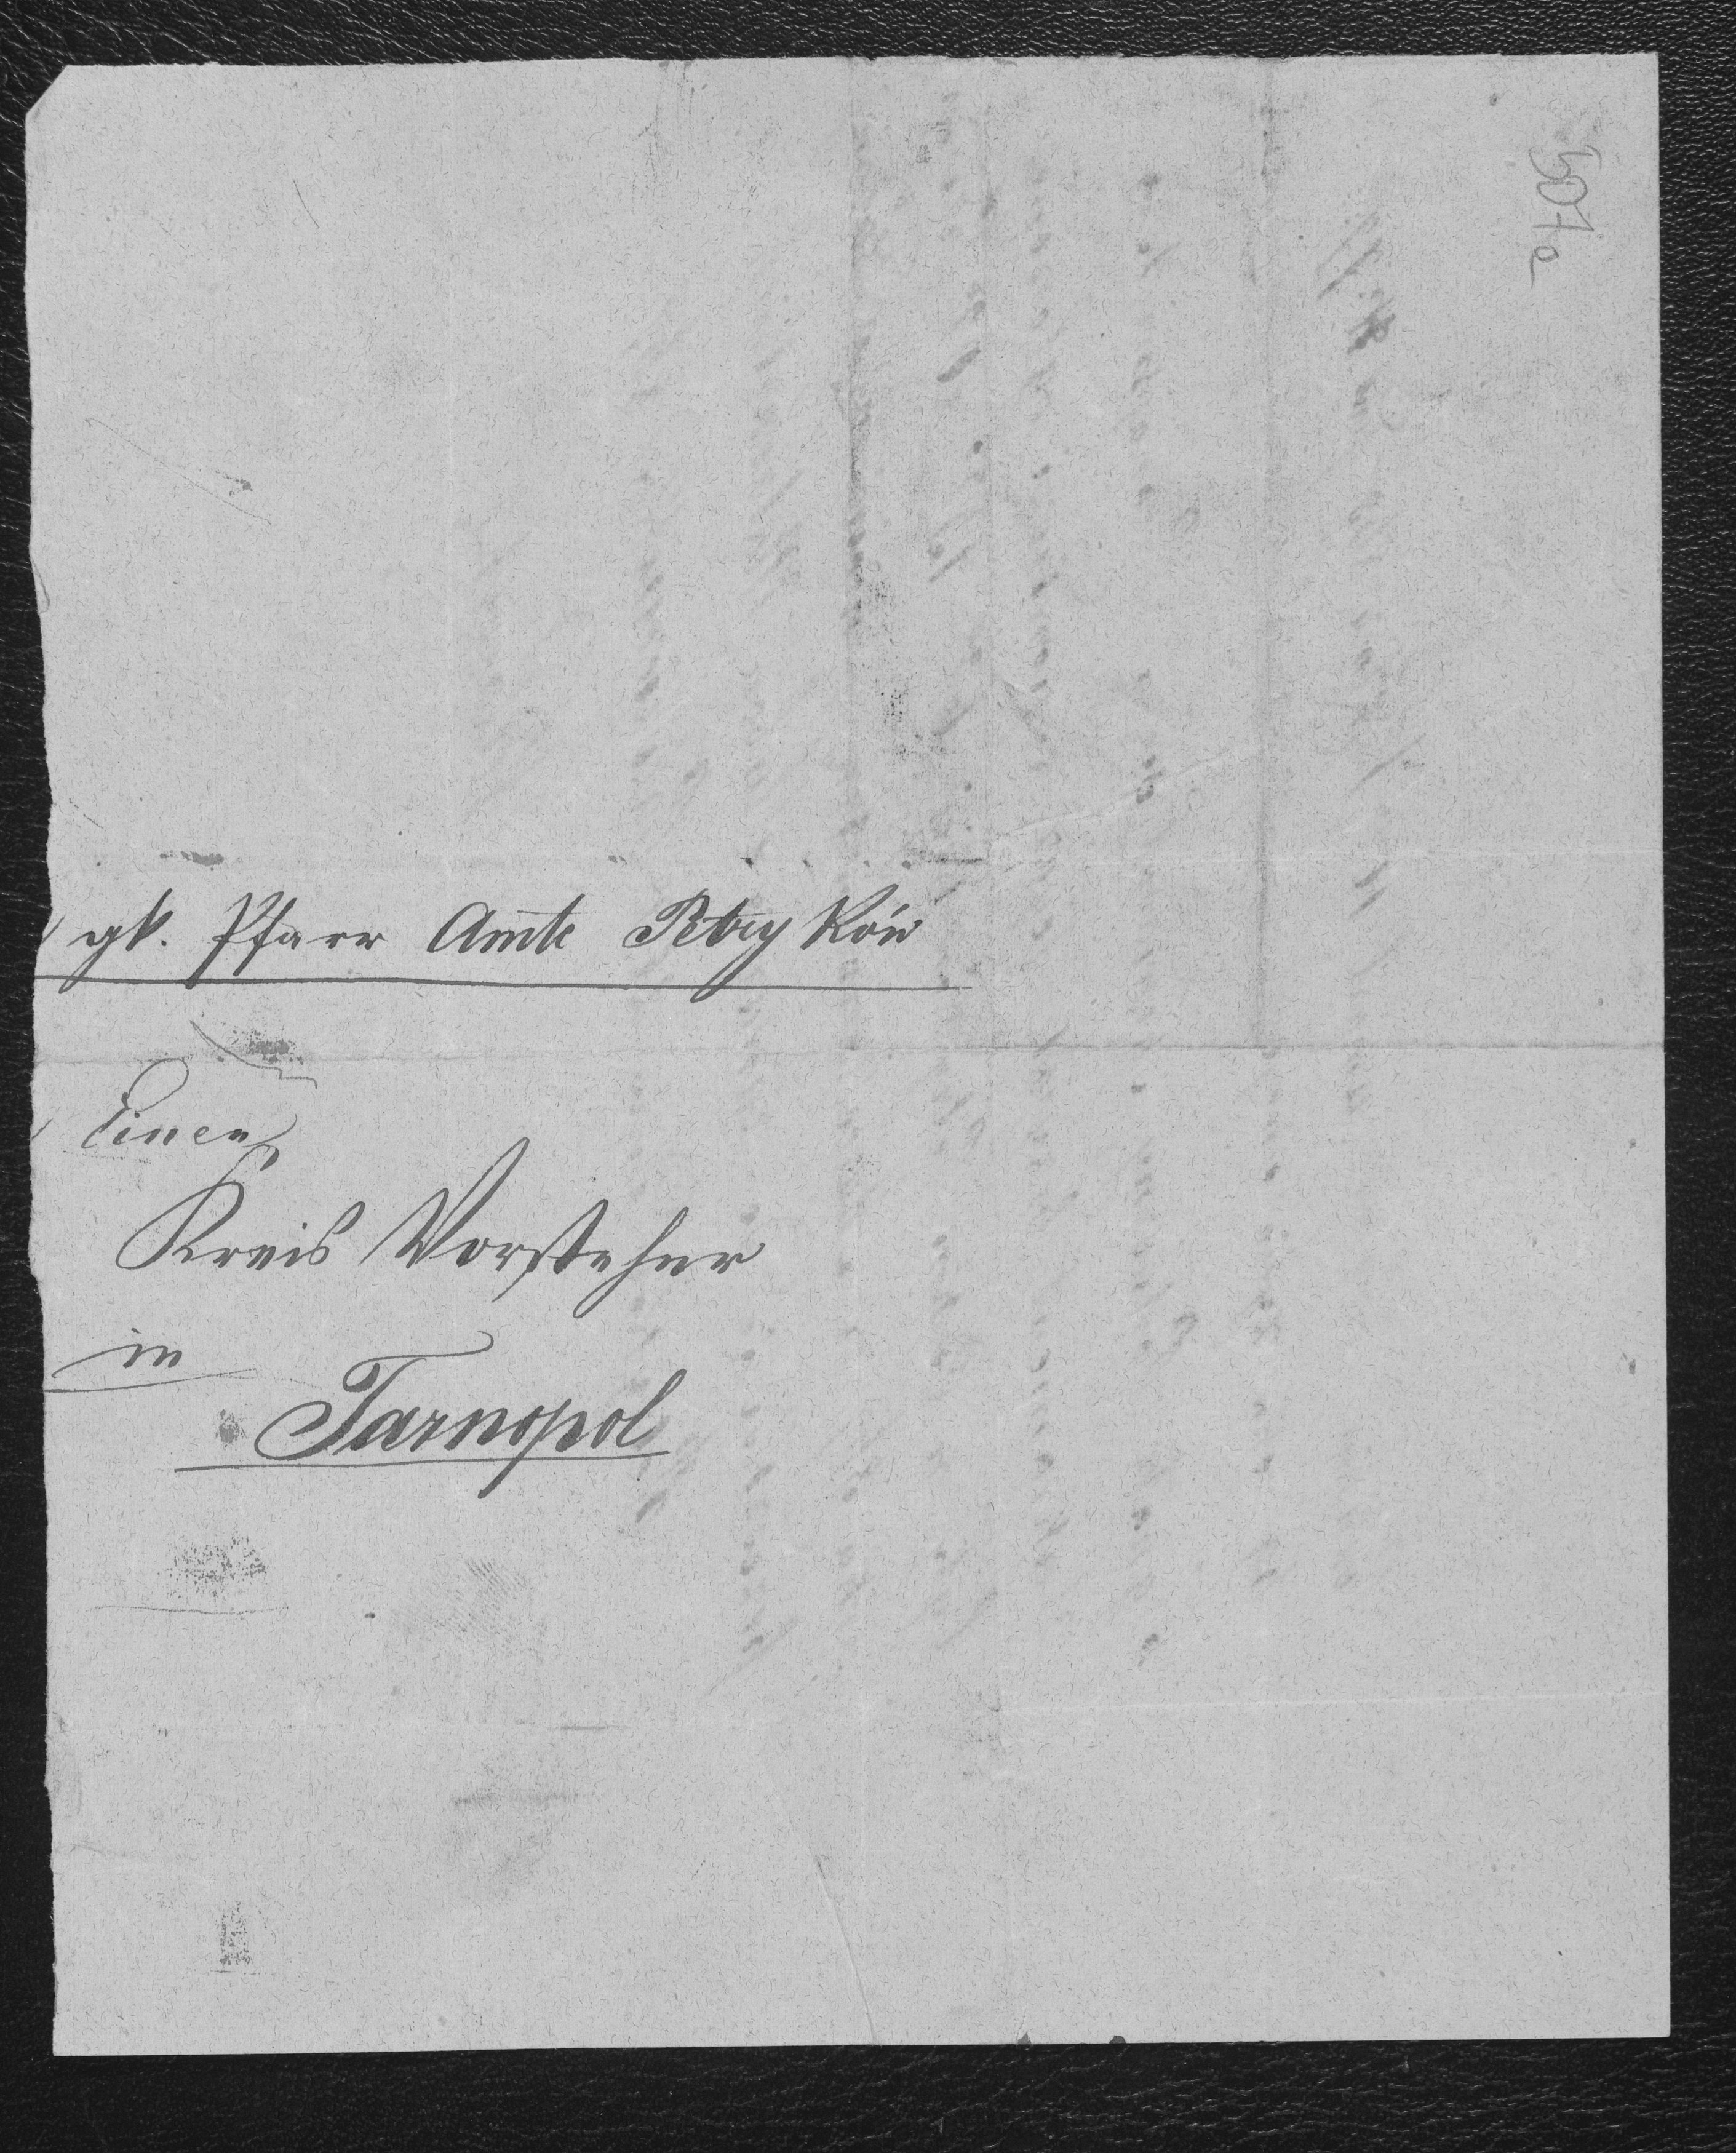 507a
gk. Pfarr Amte Petryków
Einen
Kreis Vorsteher
in
Tarnopol